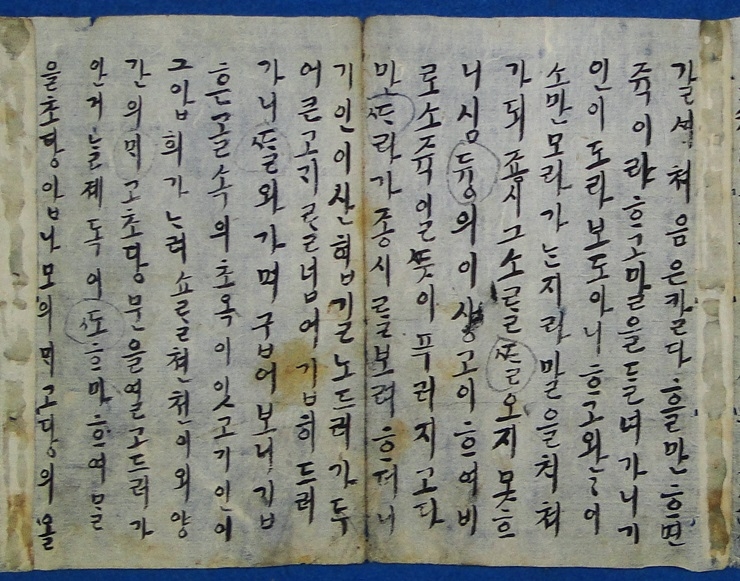 갈셕 쳐음은 카르다 ᄒᆞᆯ만 ᄒᆞ면
쥭이라 ᄒᆞ고 말을 들며 가니 기
인이 도라보도 아니 ᄒᆞ고 완〃이
소만 모라 가ᄂᆞᆫ지라 말을 치쳐
가되 죵시 그 소ᄅᆞᆯ ᄯᆞᆯ오지 못ᄒᆞ
니 심듕의 이샹고이 ᄒᆞ여 비
로소 쥭일 ᄯᅳᆺ이 푸러지고 다
만 ᄯᆞ라가 죵시ᄅᆞᆯ 보려 ᄒᆞ더니
기인이 산협길노 드러가 두
어 큰 고ᄀᆡᄅᆞᆯ 넘어 기пи히 드러
가니 ᄯᆞᆯ와 가며 구버 보니 깁
흔 골 속의 초옥이 잇고 기인이
그 압희 가 ᄂᆞ려 쇼ᄅᆞᆯ 쳔쳔이 외양
간의 ᄆᆡ고 초당문을 열고 드러가
안거늘 졔독이 ᄯᅩ 하마ᄒᆞ여 ᄆᆞᆯ
을 초당 압 나모의 ᄆᆡ고 당의 올